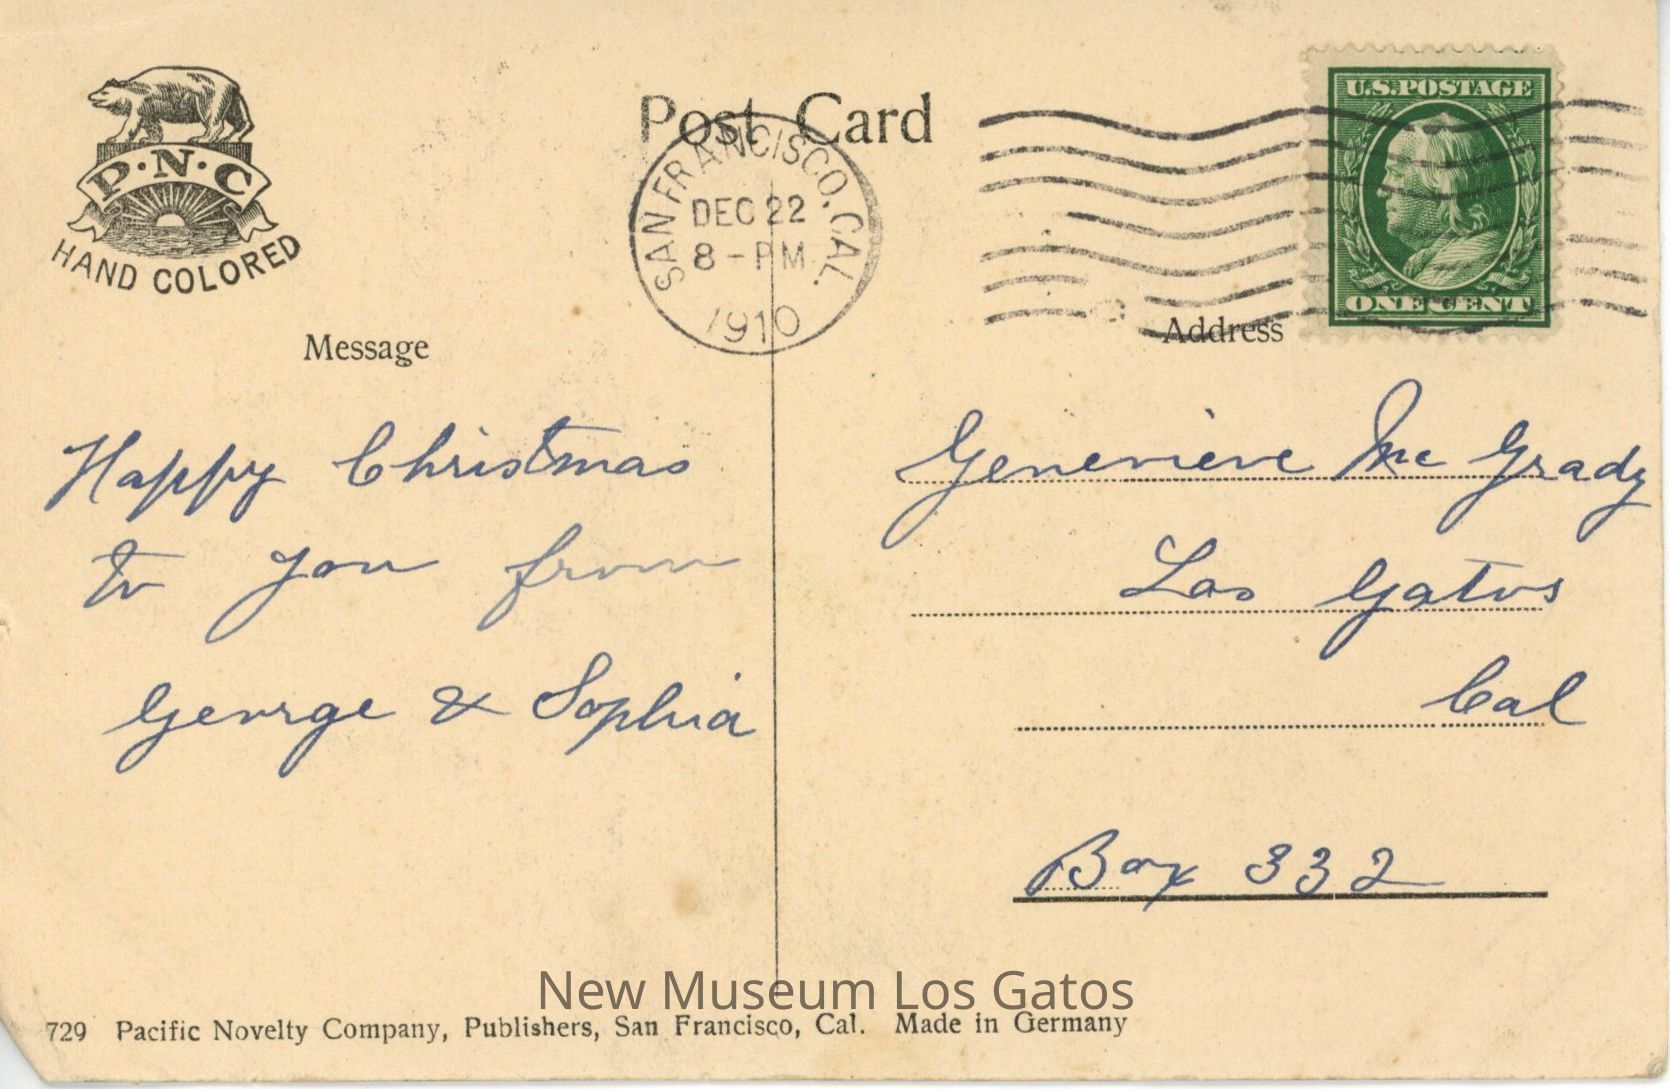 Post Card
P·N·C
HAND COLORED
SAN FRANCISCO, CAL.
DEC 22
8-PM
1910
U.S. POSTAGE
ONE CENT
Message
Address
Happy Christmas
to you from
George & Sophia
Genevieve Mc Grady
Los Gatos
Cal
Box 332
New Museum Los Gatos
729 Pacific Novelty Company, Publishers, San Francisco, Cal. Made in Germany